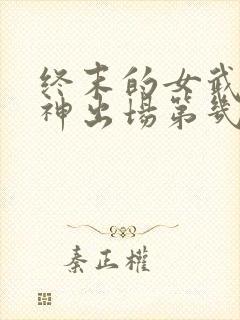 终末的女武
神出场第几
秦正权